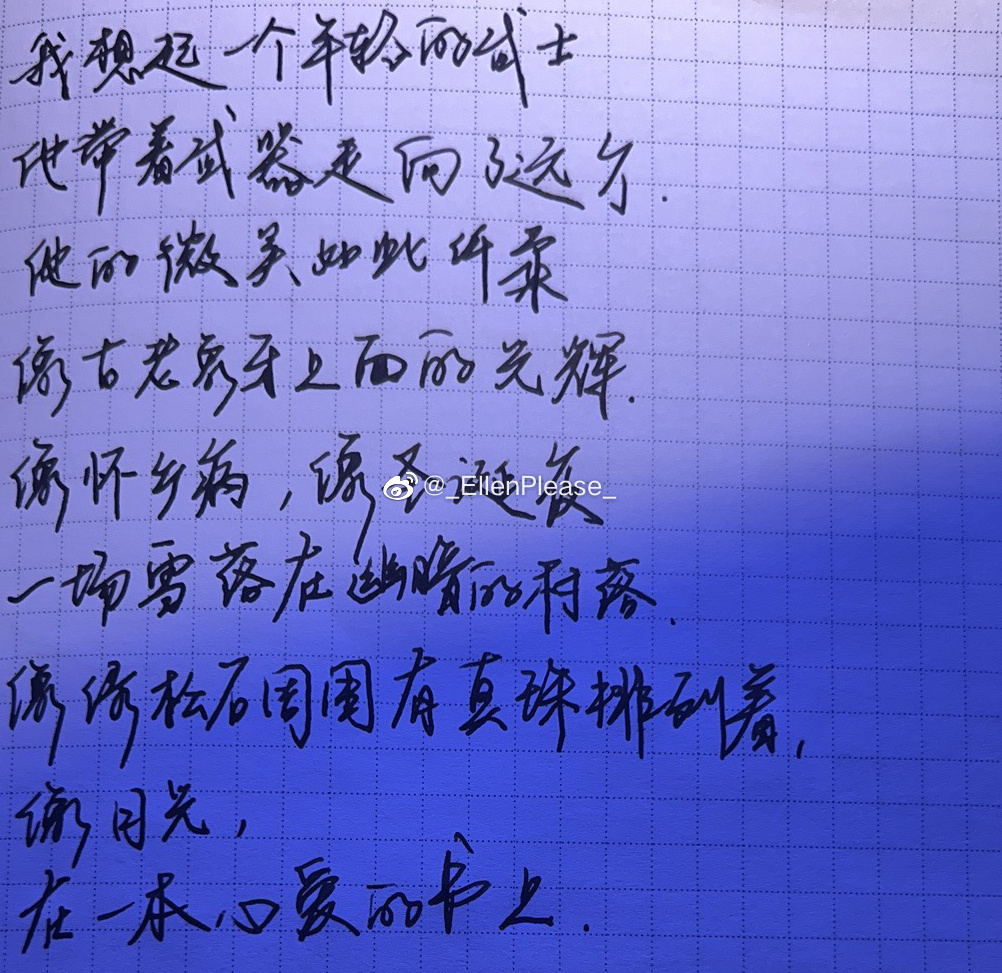 我想起一个年轻的武士
他带着武器走向了远方.
他的微笑如此纤柔
像古老象牙上面的光辉.
像怀乡病，像圣诞夜
@_EllenPlease_
一场雪落在幽暗的村落.
像绿松石周围有真珠排列着,
像月光,
在一本心爱的书上.